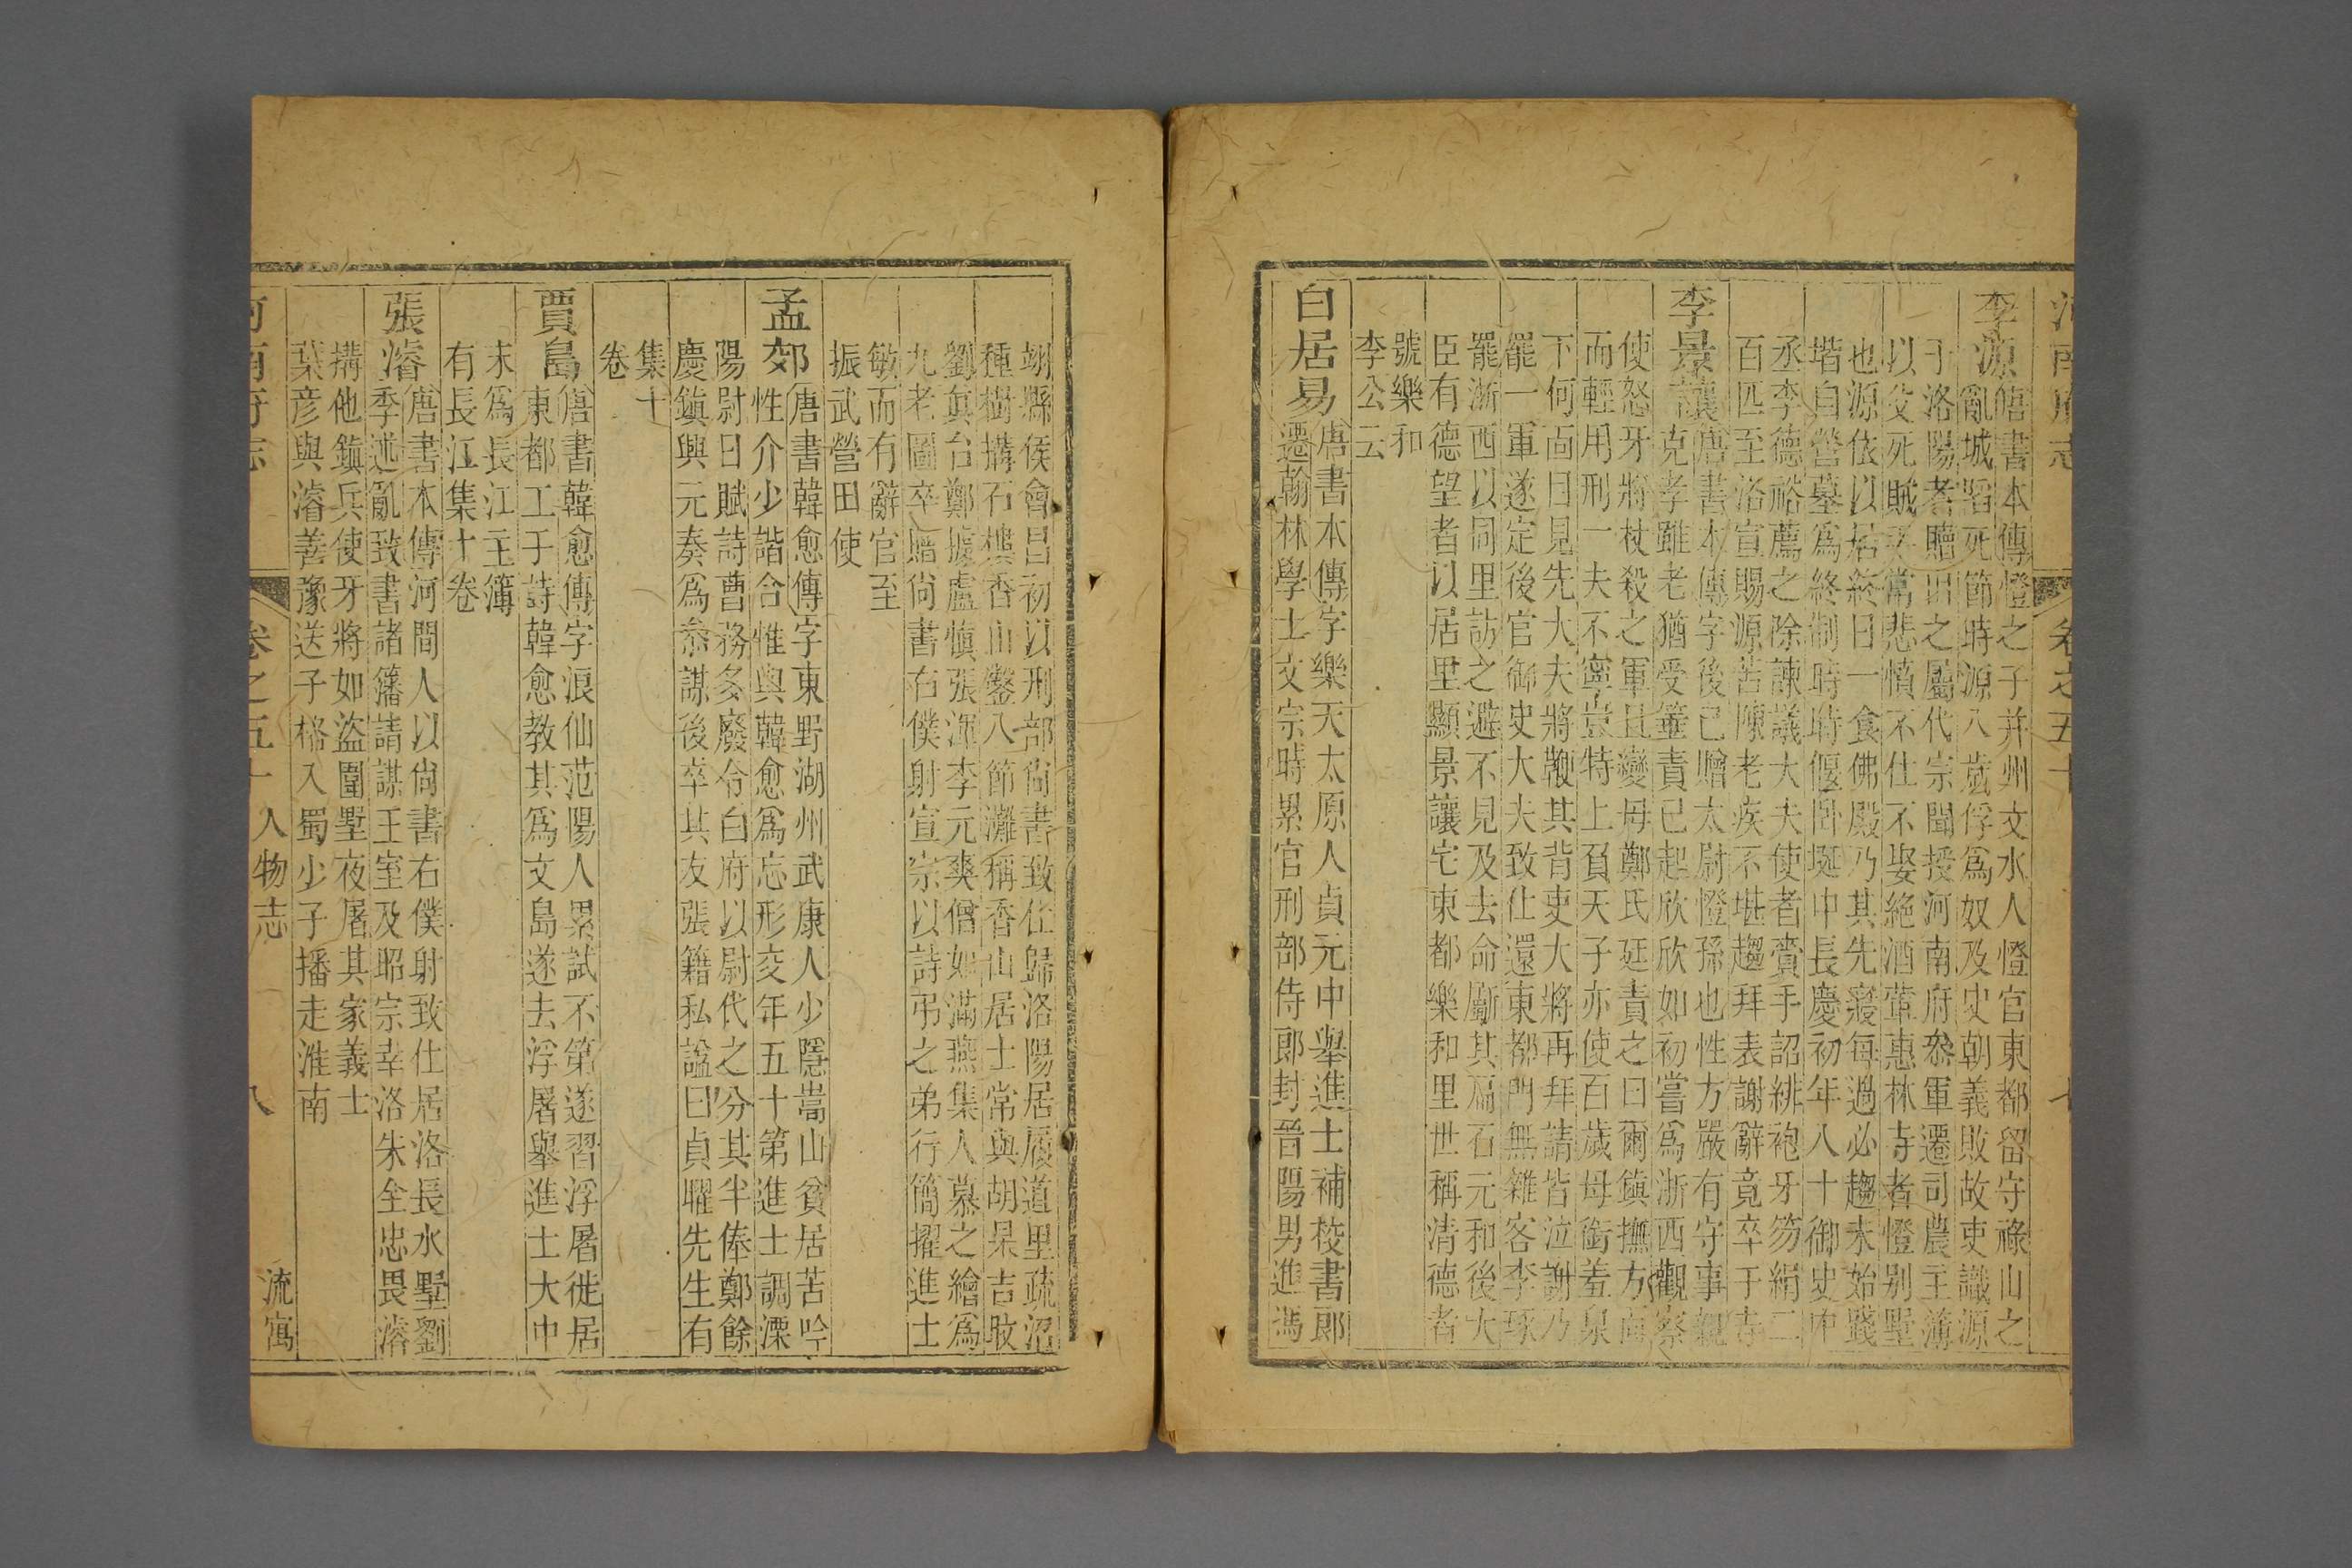 河南府志
卷之五十
七
李源
唐書本傳憕之子并州文水人憕官東都留守祿山之
亂城䧟死節時源八歲俘爲奴及史朝義敗故吏識源
于洛陽者贖出之屬代宗聞授河南府叅軍遷司農主簿
以父死賊手常悲憤不仕不娶絕酒葷惠林寺者憕別墅
也源依以居終日一食佛殿乃其先寢每過必趨未始踐
堦自營墓爲終制時時偃卧埏中長慶初年八十御史中
丞李德裕薦之除諫議大夫使者賫手詔緋袍牙笏絹二
百匹至洛宣賜源苦陳老疾不堪趨拜表謝辭竟卒于寺
李景讓
唐書本傳字後已贈太尉憕孫也性方嚴有守事親
克孝雖老猶受箠責已起欣欣如初嘗爲浙西觀察
使怒牙將杖殺之軍且變母鄭氏廷責之曰爾鎮撫方面
而輕用刑一夫不寧豈特上負天子亦使百歲母銜羞泉
下何面目見先大夫將鞭其背吏大將再拜請皆泣謝乃
罷一軍遂定後官御史大夫致仕還東都門無雜客李琢
罷浙西以同里訪之避不見及去命斸其馬石元和後大
臣有德望者以居里顯景讓宅東都樂和里世稱清德者
號樂和
李公云
白居易
唐書本傳字樂天太原人貞元中舉進士補校書郎
遷翰林學士文宗時累官刑部侍郎封晉陽男進馮
翊縣侯會昌初以刑部尙書致仕歸洛陽居履道里疏沼
種樹搆石樓香山鑿八節灘稱香山居士常與胡杲吉旼
劉眞台鄭據盧愼張渾李元爽僧如滿燕集人慕之繪爲
九老圖卒贈尙書右僕射宣宗以詩弔之弟行簡擢進士
敏而有辭官至
振武營田使
孟郊
唐書韓愈傳字東野湖州武康人少隱嵩山貧居苦吟
性介少諧合惟與韓愈爲忘形交年五十第進士調溧
陽尉日賦詩曹務多廢令白府以尉代之分其半俸鄭餘
慶鎮興元奏爲叅謀後卒其友張籍私謚曰貞曜先生有
集十
卷
賈島
唐書韓愈傳字浪仙范陽人累試不第遂習浮屠徙居
東都工于詩韓愈教其爲文島遂去浮屠舉進士大中
末爲長江主簿
有長江集十卷
張濬
唐書本傳河間人以尙書右僕射致仕居洛長水墅劉
季述亂致書諸籓請謀王室及昭宗幸洛朱全忠畏濬
搆他鎮兵使牙將如盜圍墅夜屠其家義士
葉彥與濬善豫送子格入蜀少子播走淮南
河南府志
卷之五十
人物志
八
流寓